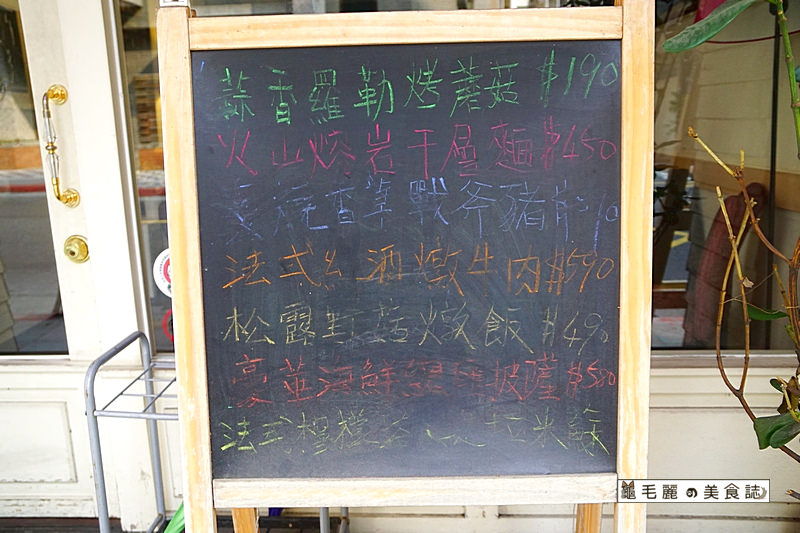 蒜香羅勒烤蘑菇 $190
火山熔岩千層麵 $450
燒香草戰斧豬排
法式紅酒燉牛肉 $590
松露野菇燉飯 $490
豪華海鮮總匯披薩 $580
法式檸檬 拉米穌
毛麗の美食誌